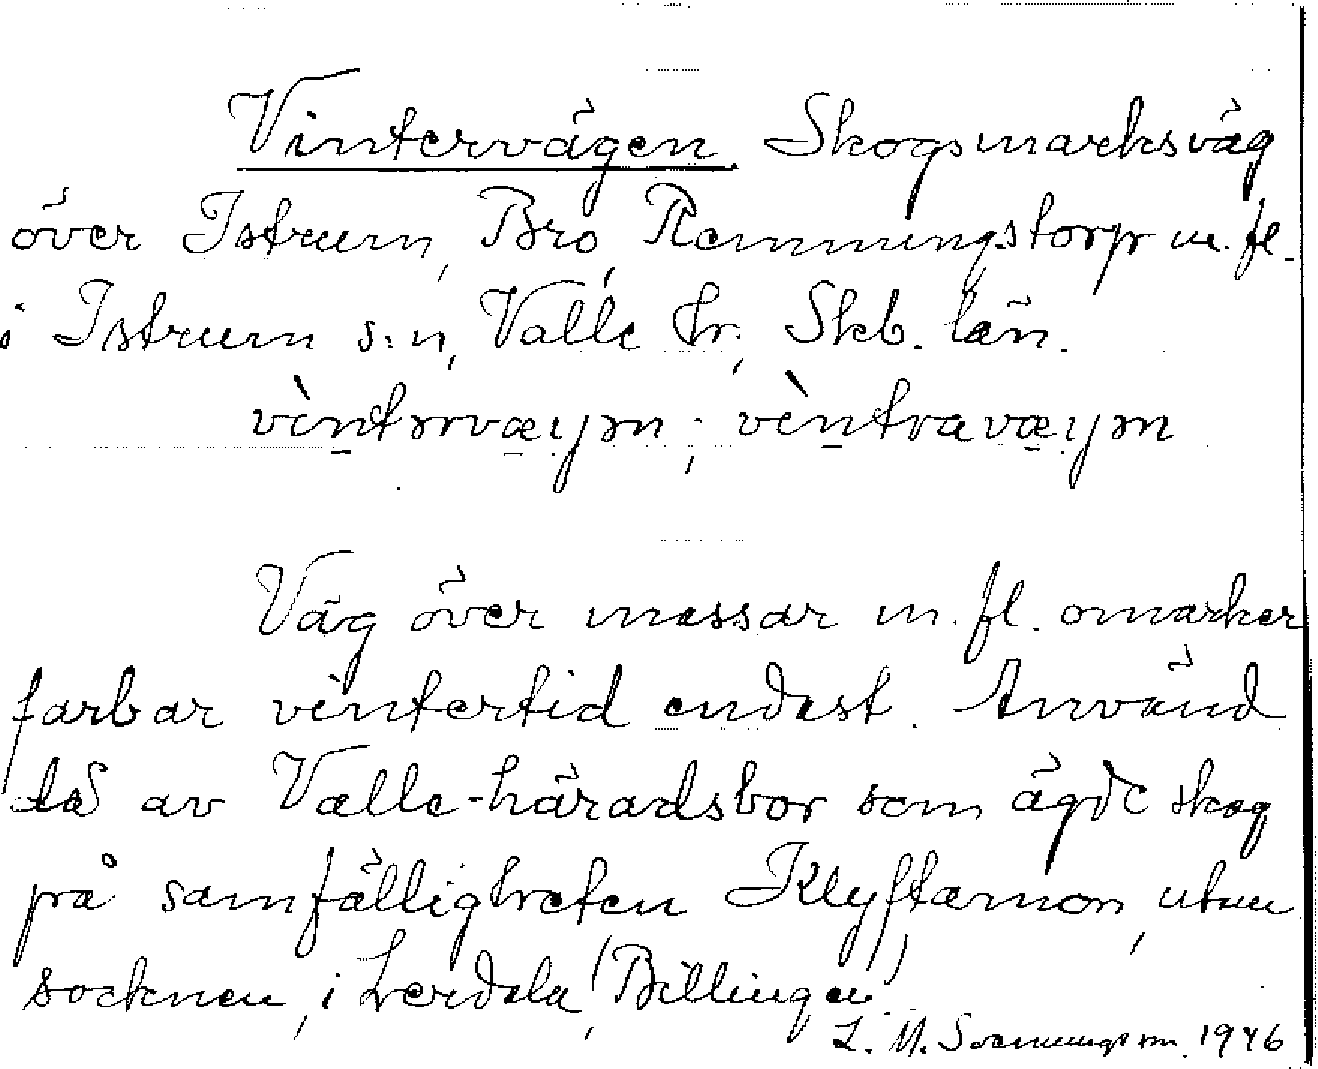 Vintervägen. Skogsmarksväg
över Istrum, Bro, Remmungstorp m. fl.
i Istrum s:n, Valle hr; Skb. län.
vìntrvæyən; vìntravæyən
Väg över mossar m. fl. omarker
farbar vintertid endast. Använd
då av Valle-häradsbor som ägde skog
på samfälligheten Klyftamon, utan
socknen, i Lerdala (Billingen)
L. M. Svenungsson 1946